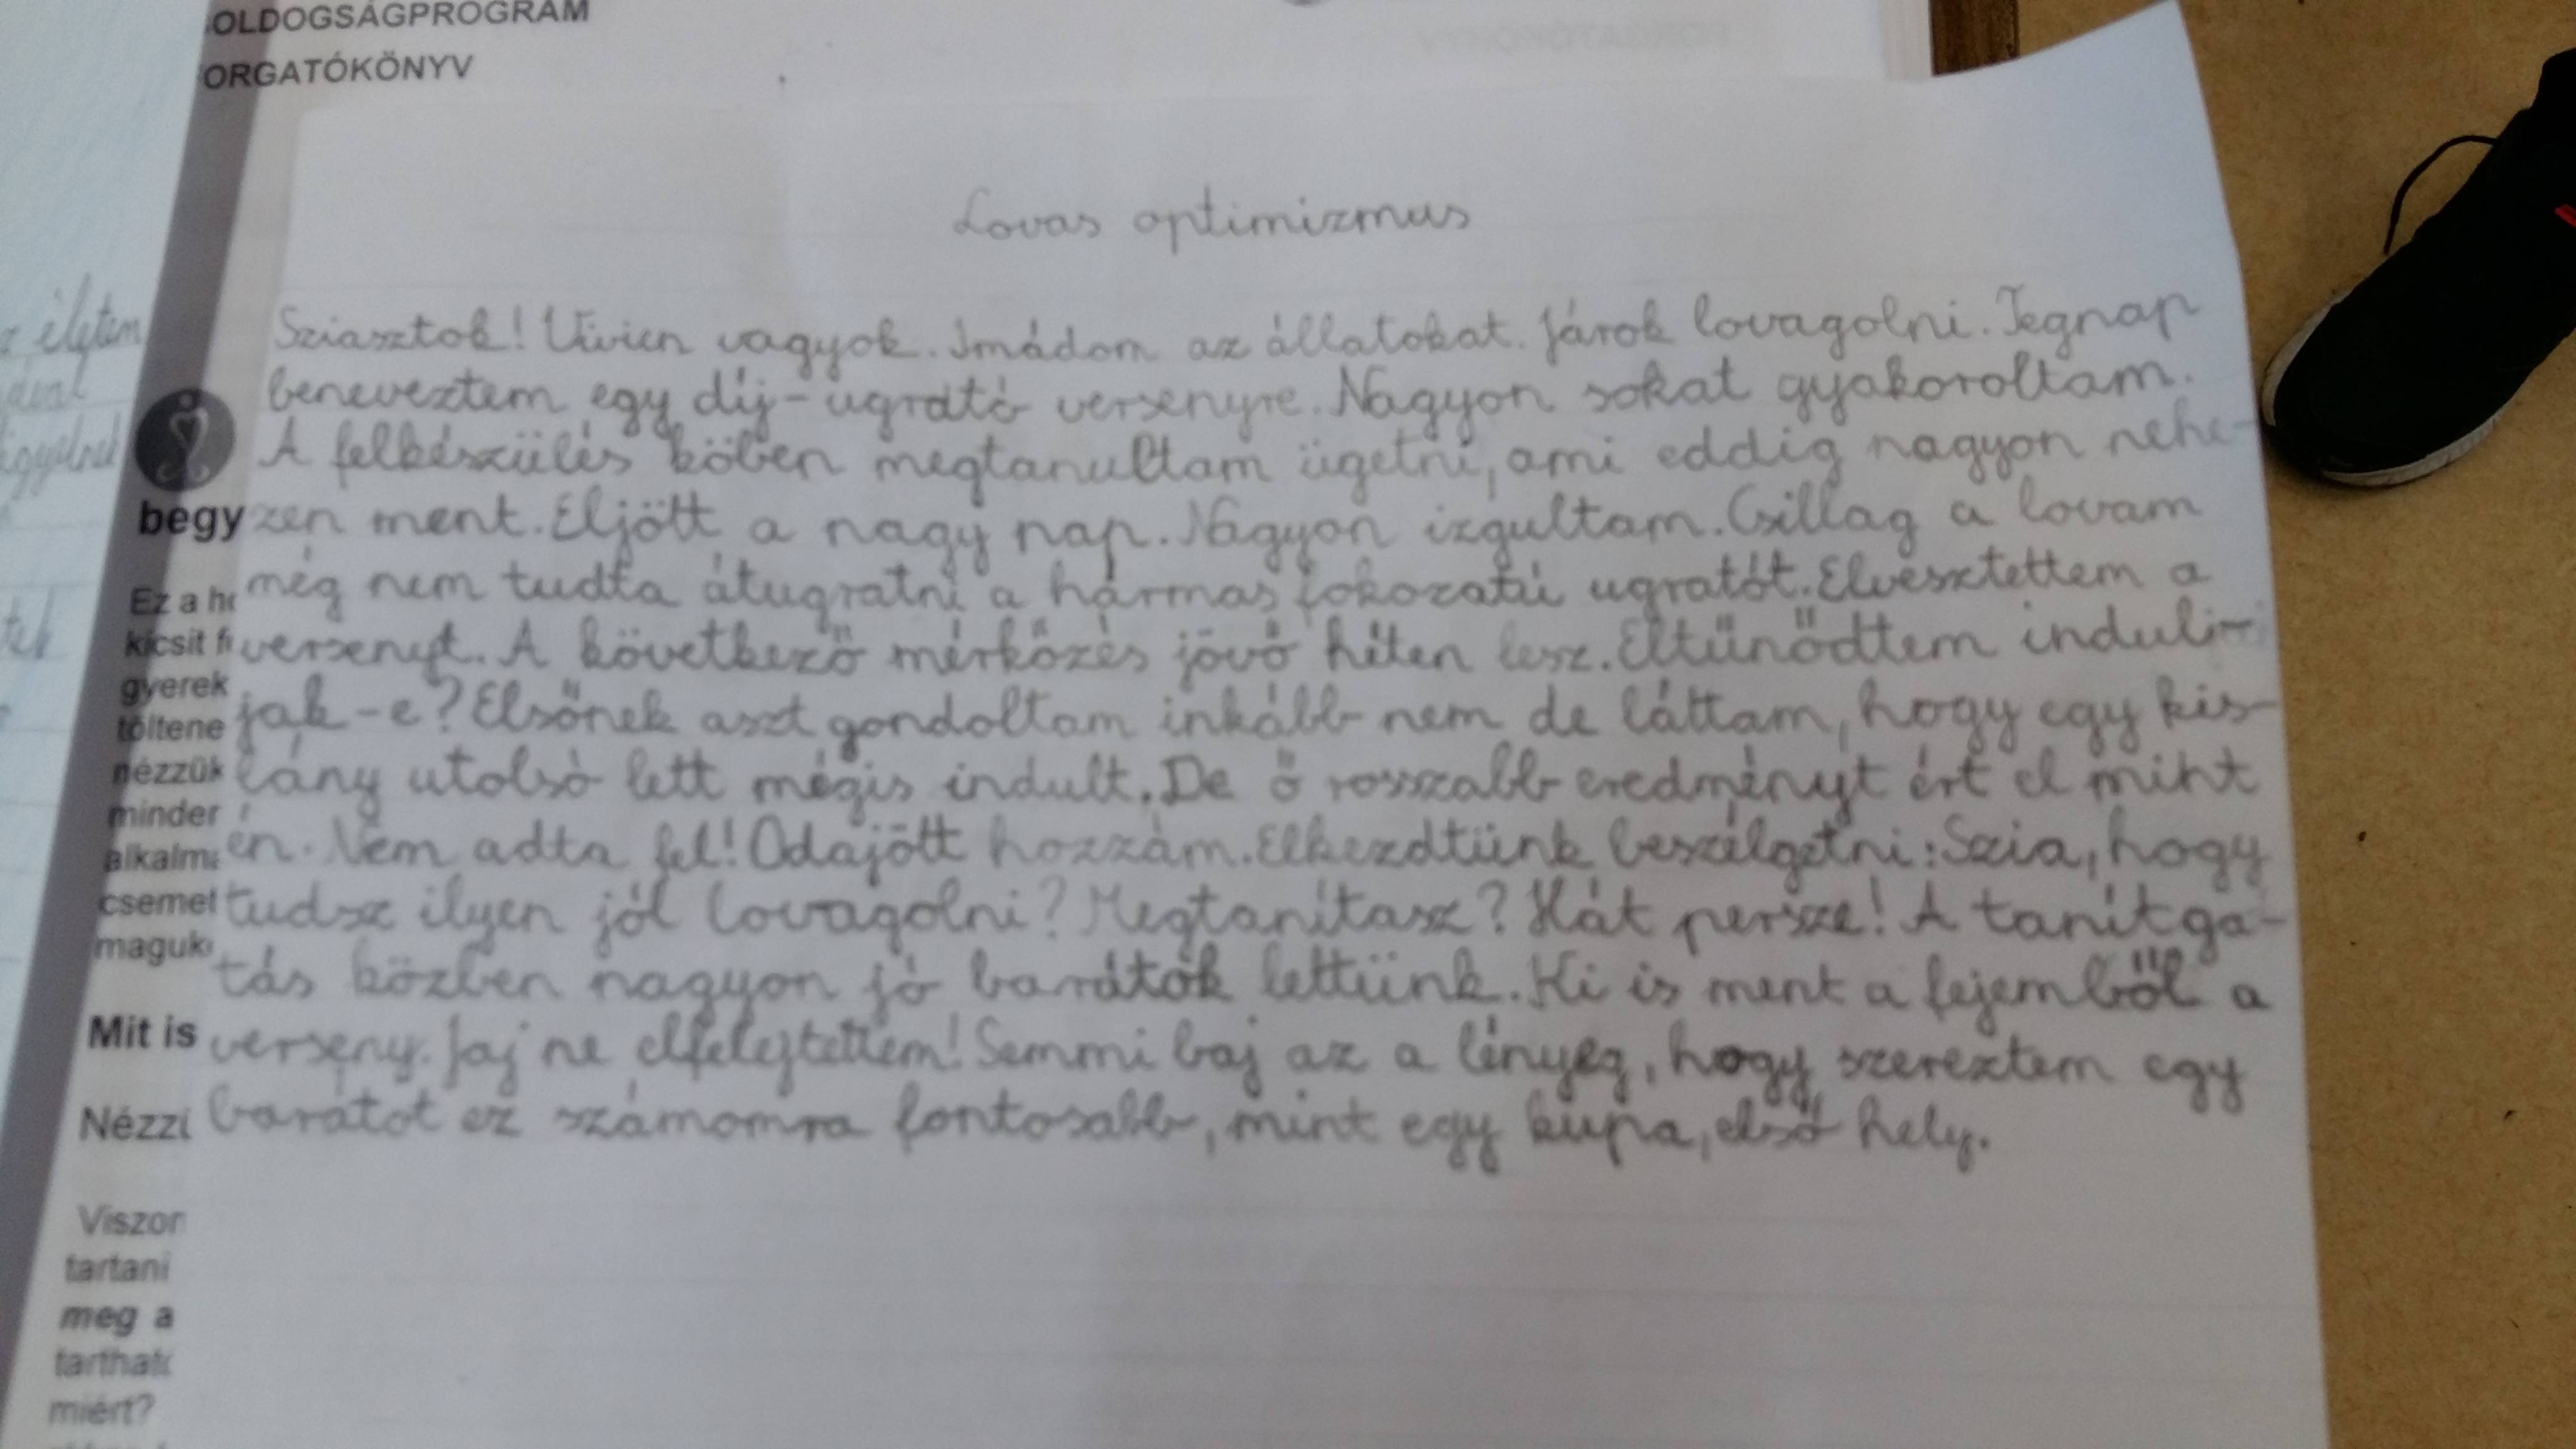 OLDOGSÁGPROGRAM
ORGATÓKÖNYV
Lovas optimizmus
Sziasztok! Vivien vagyok. Imádom az állatokat. Járok lovagolni. Tegnap
beneveztem egy díj-ugrató versenyre. Nagyon sokat gyakoroltam.
A felkészülés köben megtanultam ügetni, ami eddig nagyon nehe-
zen ment. Eljött a nagy nap. Nagyon izgultam. Csillag a lovam
még nem tudta átugratni a hármas fokozatú ugratót. Elvesztettem a
versenyt. A következő mérkőzés jövő héten lesz. Eltűnődtem indul-
jak-e? Elsőnek aszt gondoltam inkább nem de láttam, hogy egy kis-
lány utolsó lett mégis indult. De ő rosszabb eredményt ért el mint
én. Nem adta fel! Odajött hozzám. Elkezdtünk beszélgetni: Szia, hogy
tudsz ilyen jól lovagolni? Megtanítasz? Hát persze! A tanítga-
tás közben nagyon jó barátok lettünk. Ki is ment a fejemből a
verseny. Jaj ne elfelejtettem! Semmi baj az a lényeg, hogy szereztem egy
barátot ez számomra fontosabb, mint egy kupa, első hely.
z életem
tek
begy
Ez a
kicsit
gyerek
töltene
nézzük
minder
alkalm
csemet
maguk
Mit is
Nézzi
Viszor
tartani
meg a
tarthat
miért?